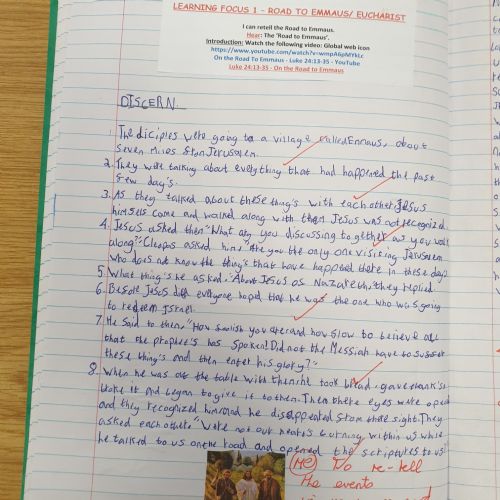 LEARNING FOCUS 1 - ROAD TO EMMAUS/ EUCHARIST
I can retell the Road to Emmaus.
Hear: The 'Road to Emmaus'.
Introduction: Watch the following video: Global web icon
On the Road To Emmaus - Luke 24:13-35 - YouTube
Luke 24:13-35 - On the Road to Emmaus
DISCERN
1. The diciples were going to a village called Emnaus, about
seven miles from Jerusalem.
2. They were talking about everything that had happened the past
few day's.
3. As they talked about these thing's with each other, Jesus
himself came and walked along with them Jesus was not recognized
4. Jesus asked them "What are you discussing together as you walk
along?" Cleopas asked him "Are you the only one visiting Jerusalem
who does not know the thing's that have happened there in these days
5. What thing's he asked. "About Jesus of Nazareth" they replied.
6. Before Jesus died everyone hoped that he was the one who was going
to redeem Israel.
7. He said to them, "How foolish you are and how slow to believe all
that the prophets has spoken! Did not the Messiah have to suffer
these thing's and then enter his glory?"
8. When he was at the table with them he took bread, gave thank's
broke it and began to give it to them. Then there eyes were opened
and they recognized him and he disappeared from there sight. They
asked each other "were not our hearts burning within us while
he talked to us on the road and opened the scriptures to us"
(Me) To re-tell
the events